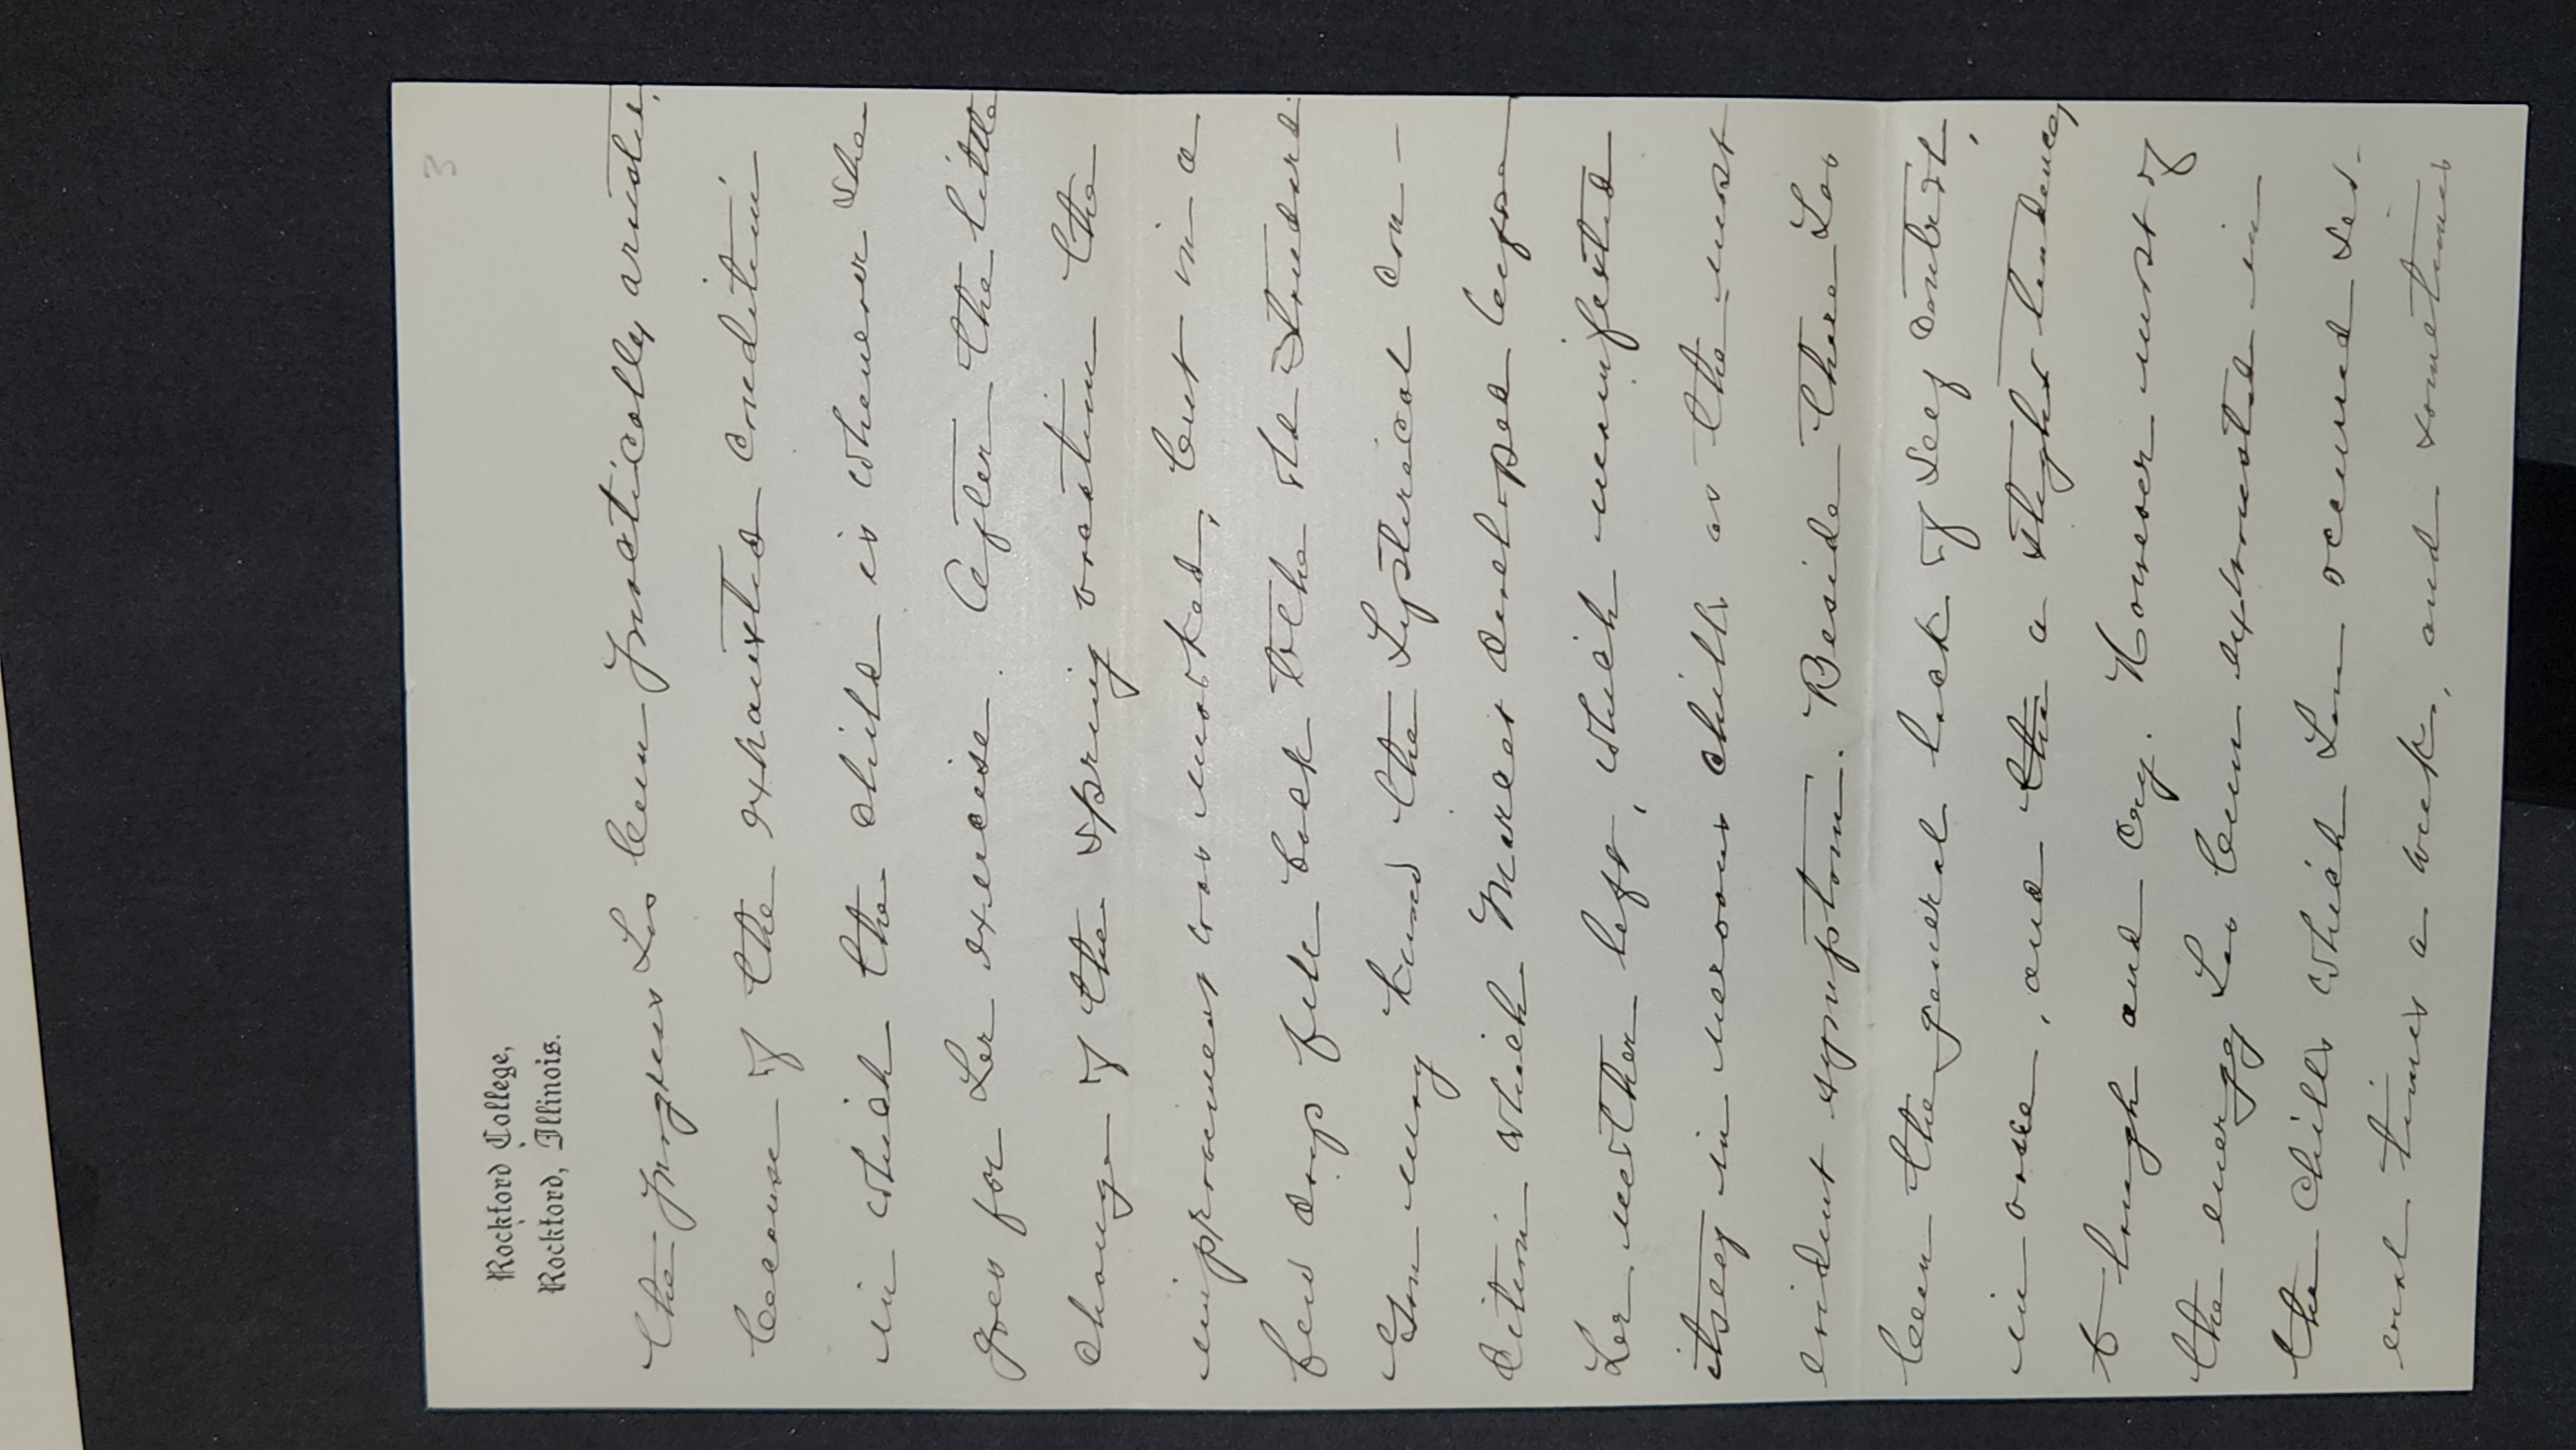 3
Rockford College,
Rockford, Illinois.
The progress has been practically arrested,
because of the exhausted condition
in which the child is whenever she
goes for her exercise. After the little
change of the spring vacation the
improvement was marked, but in a
few days fell back to the old standard.
You may know the hysterical con-
dition which Marcet developed before
her mother left, which manifested
itself in nervous chills as the most
evident symptom. Beside there has
been the general lack of self control,
in voice, and the a slight tendency
to laugh and cry. However most of
the energy has been expended in
the chills which have occurred sev-
eral times a week, and sometimes